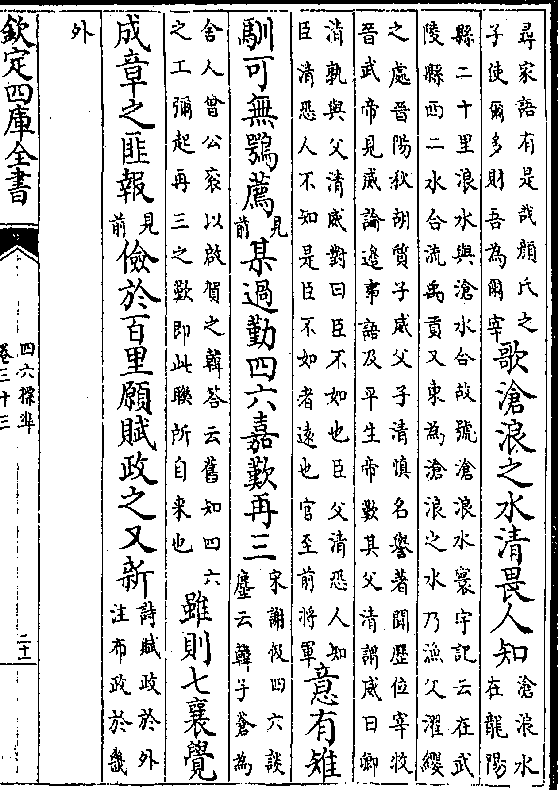 尋家語有是哉顏氏之
子使爾多財吾為爾宰
歌滄浪之水清畏人知
滄浪水
在龍陽
縣二十里浪水與滄水合故號滄浪水寰宇記云在武
陵縣西二水合流禹貢又東為滄浪之水乃漁父濯纓
之處晉陽秋胡質子威父子清慎名譽著聞歷位宰牧
晉武帝見威論邊事語及平生帝歎其父清謂威曰卿
清孰與父清威對曰臣不如也臣父清恐人知
臣清恐人不知是臣不如者遠也官至前將軍
意有雉
馴可無鶚薦
見
前
某過勤四六嘉歎再三
宋謝伋四六談
麈云韓子蒼為
舍人曾公袞以啟賀之韓答云舊如四六
之工彌起再三之歎即此聯所自来也
雖則七襄覺
成章之匪報
見
前
儉於百里願賦政之又新
詩賦政於外
注布政於畿
外
欽定四庫全書
四六標準
卷三十三
二十二